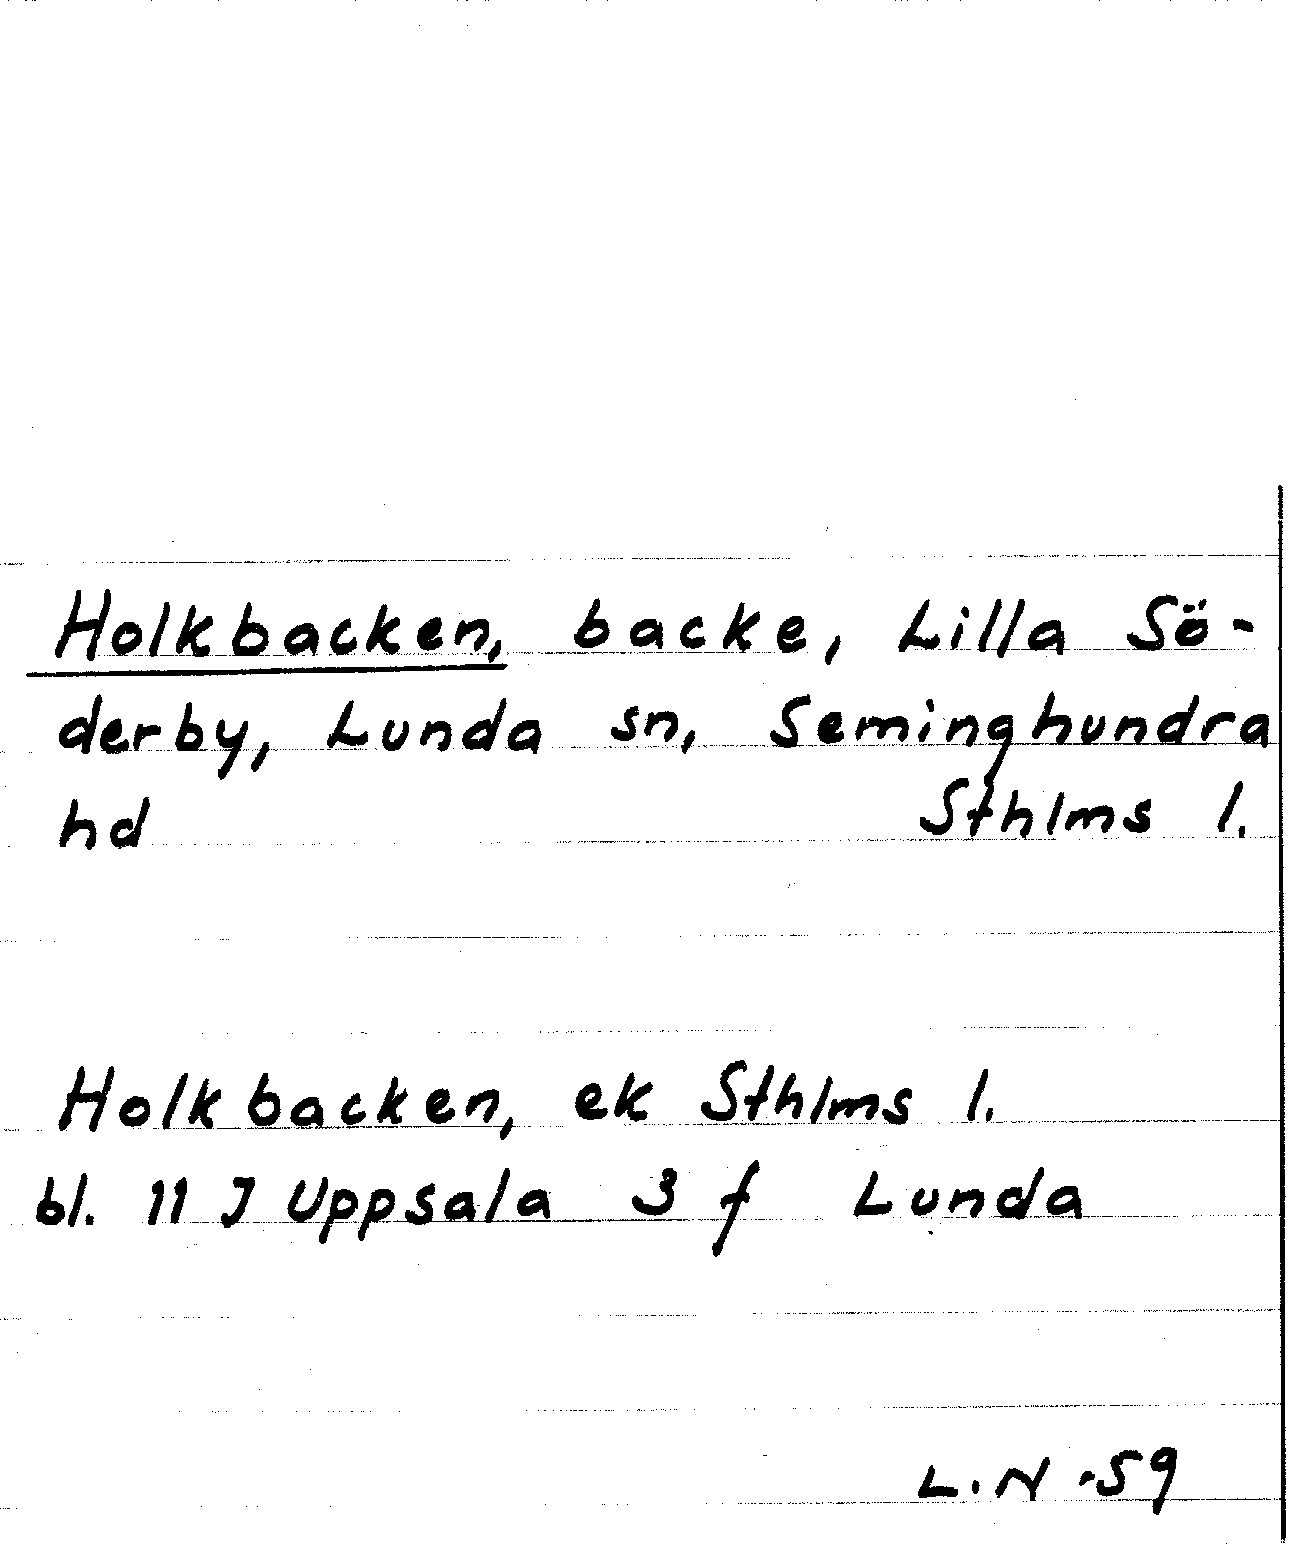 Holkbacken, backe, Lilla Sö-
derby, Lunda sn, Seminghundra
hd Sthlms l.
Holkbacken, ek Sthlms l.
bl. 11 J Uppsala 3 f Lunda
L.N -59